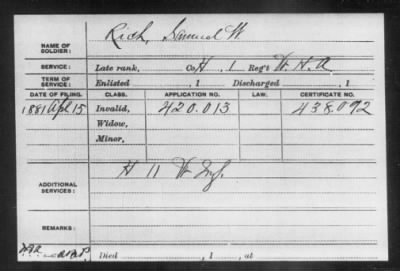 NAME OF SOLDIER: Rich, Samuel W.
SERVICE: Late rank, Co. H, 1 Reg't W. H. A.
TERM OF SERVICE: Enlisted , 1 Discharged , 1
DATE OF FILING. CLASS. APPLICATION NO. CERTIFICATE NO.
1881 Apl 15 Invalid, 420.013 438.092
Widow,
Minor,
ADDITIONAL SERVICES: H 11 W Inf.
REMARKS:
Died , 1 , at